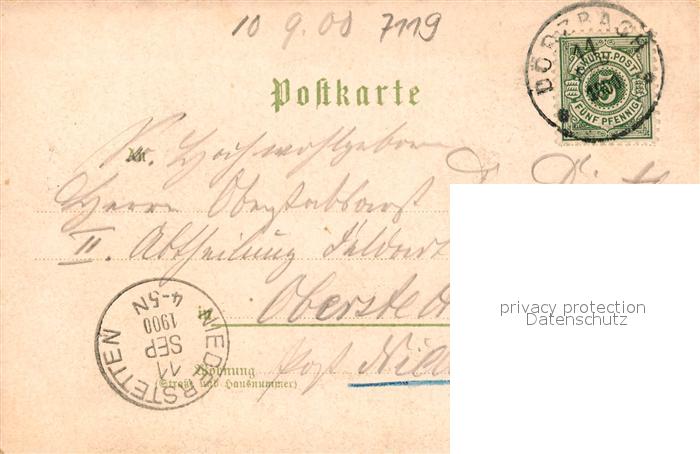 10 9.00 7119
DÖRZBACH
11
K. WÜRTT. POST
5
FÜNF PFENNIG
Postkarte
An
Sr. Hochwohlgeboren
Herrn Oberstabsarzt
II. Abtheilung Feldart
in Oberstett
Post Nied
Wohnung
(Straße und Hausnummer)
NIEDERSTETTEN
11
SEP
1900
4-5N
privacy protection
Datenschutz